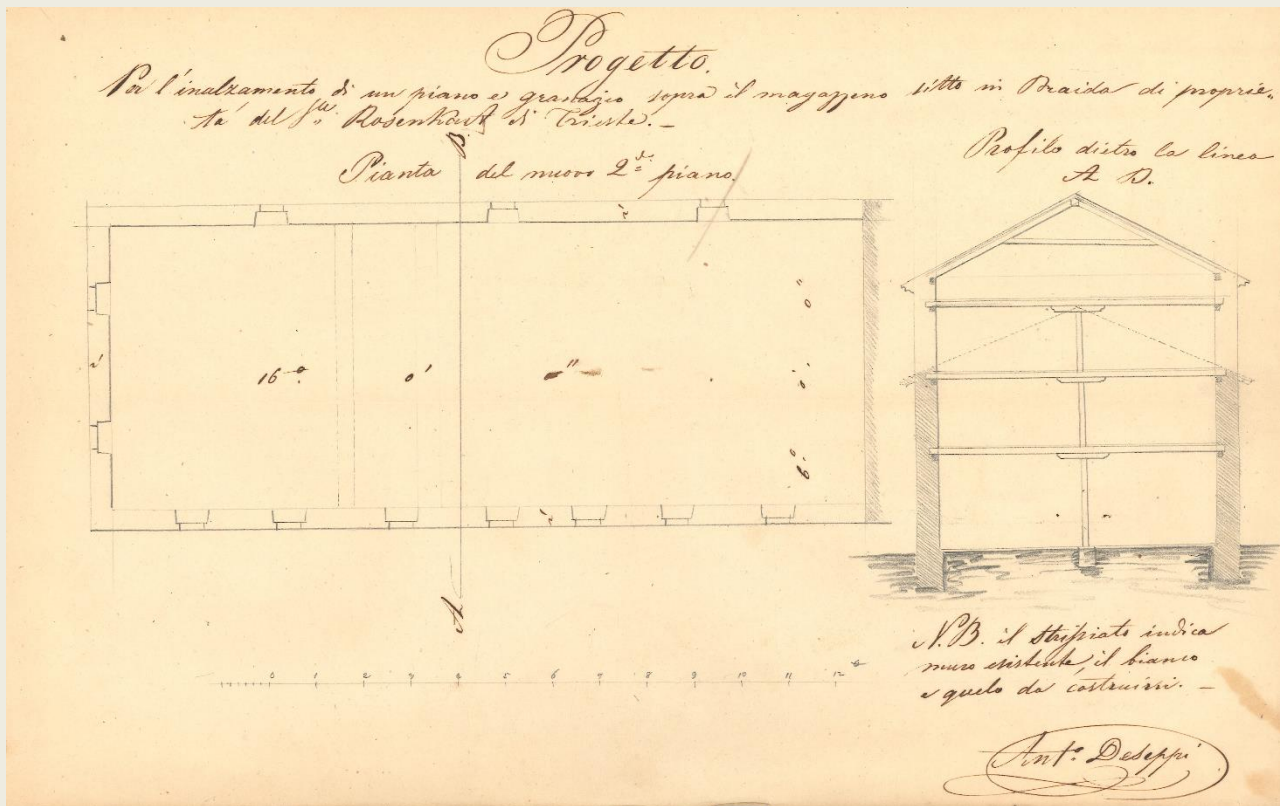 Progetto.
Per l'inalzamento di un piano e granajo sopra il magazzeno sitto in Braida di proprie=
tà del Sig.r Rosenkart di Trieste. –
Pianta del nuovo 2do piano.
Profilo dietro la linea
A B.
B
16° 0' 0"
6° 0' 0"
2'
2'
2'
A
0 1 2 3 4 5 6 7 8 9 10 11 12
N.B. il strissiato indica
muro esistente, il bianco
e quelo da costruirsi. –
Ant.o Deseppi